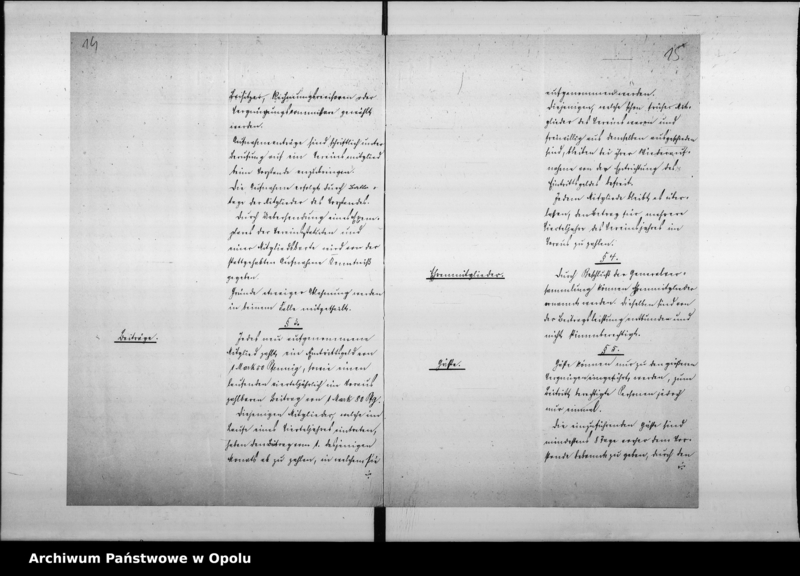 14
Beisitzer, Rechnungsrevisoren oder
Vergnügungskommission gewählt
werden.
Aufnahmeanträge sind schriftlich unter
Berufung auf ein Vereinsmitglied
beim Vorstande
Die Aufnahme erfolgt durch Ballo-
tage der Mitglieder des Vorstandes.
Durch Uebersendung eines Exem-
plars der Vereinsstatuten und
einer Mitgliedskarte wird von der
stattgehabten Aufnahme Kenntniß
gegeben.
Gründe etwaiger werden
in keinem Falle mitgetheilt.
§ 3.
Beiträge.
Jedes neu aufgenommene
Mitglied zahlt ein Eintrittsgeld von
1 Mark 50 Pfennig, sowie einen
laufenden vierteljährlich im Voraus
zahlbaren Beitrag von 1 Mark 50 Pfg.
Diejenigen Mitglieder, welche im
Laufe eines Vierteljahres eintreten,
haben den Beitrag vom 1. desjenigen
Monats ab zu zahlen, in welchem sie
15
aufgenommen werden.
Diejenigen, welche schon früher Mit-
glieder des Vereins waren und
freiwillig aus demselben ausgeschieden
sind, bleiben bei ihrer Wiederauf-
nahme von der Entrichtung des
Eintrittsgeldes befreit.
Jedem Mitgliede bleibt es über-
lassen, den Beitrag für mehrere
Vierteljahre des Vereinsjahres im
Voraus zu zahlen.
§ 4.
Ehrenmitglieder.
Durch Beschluß der Generalver-
sammlung können Ehrenmitglieder
ernannt werden. Dieselben sind von
der Beitragsleistung entbunden und
nicht stimmberechtigt.
§ 5.
Gäste.
Gäste können nur zu den größeren
Vergnügen eingeführt werden, zum
Beitritt berechtigte Personen jedoch
nur einmal.
Die einzuführenden Gäste sind
mindestens 8 Tage vorher dem Vor-
stande bekannt zu geben, durch den
Archiwum Państwowe w Opolu